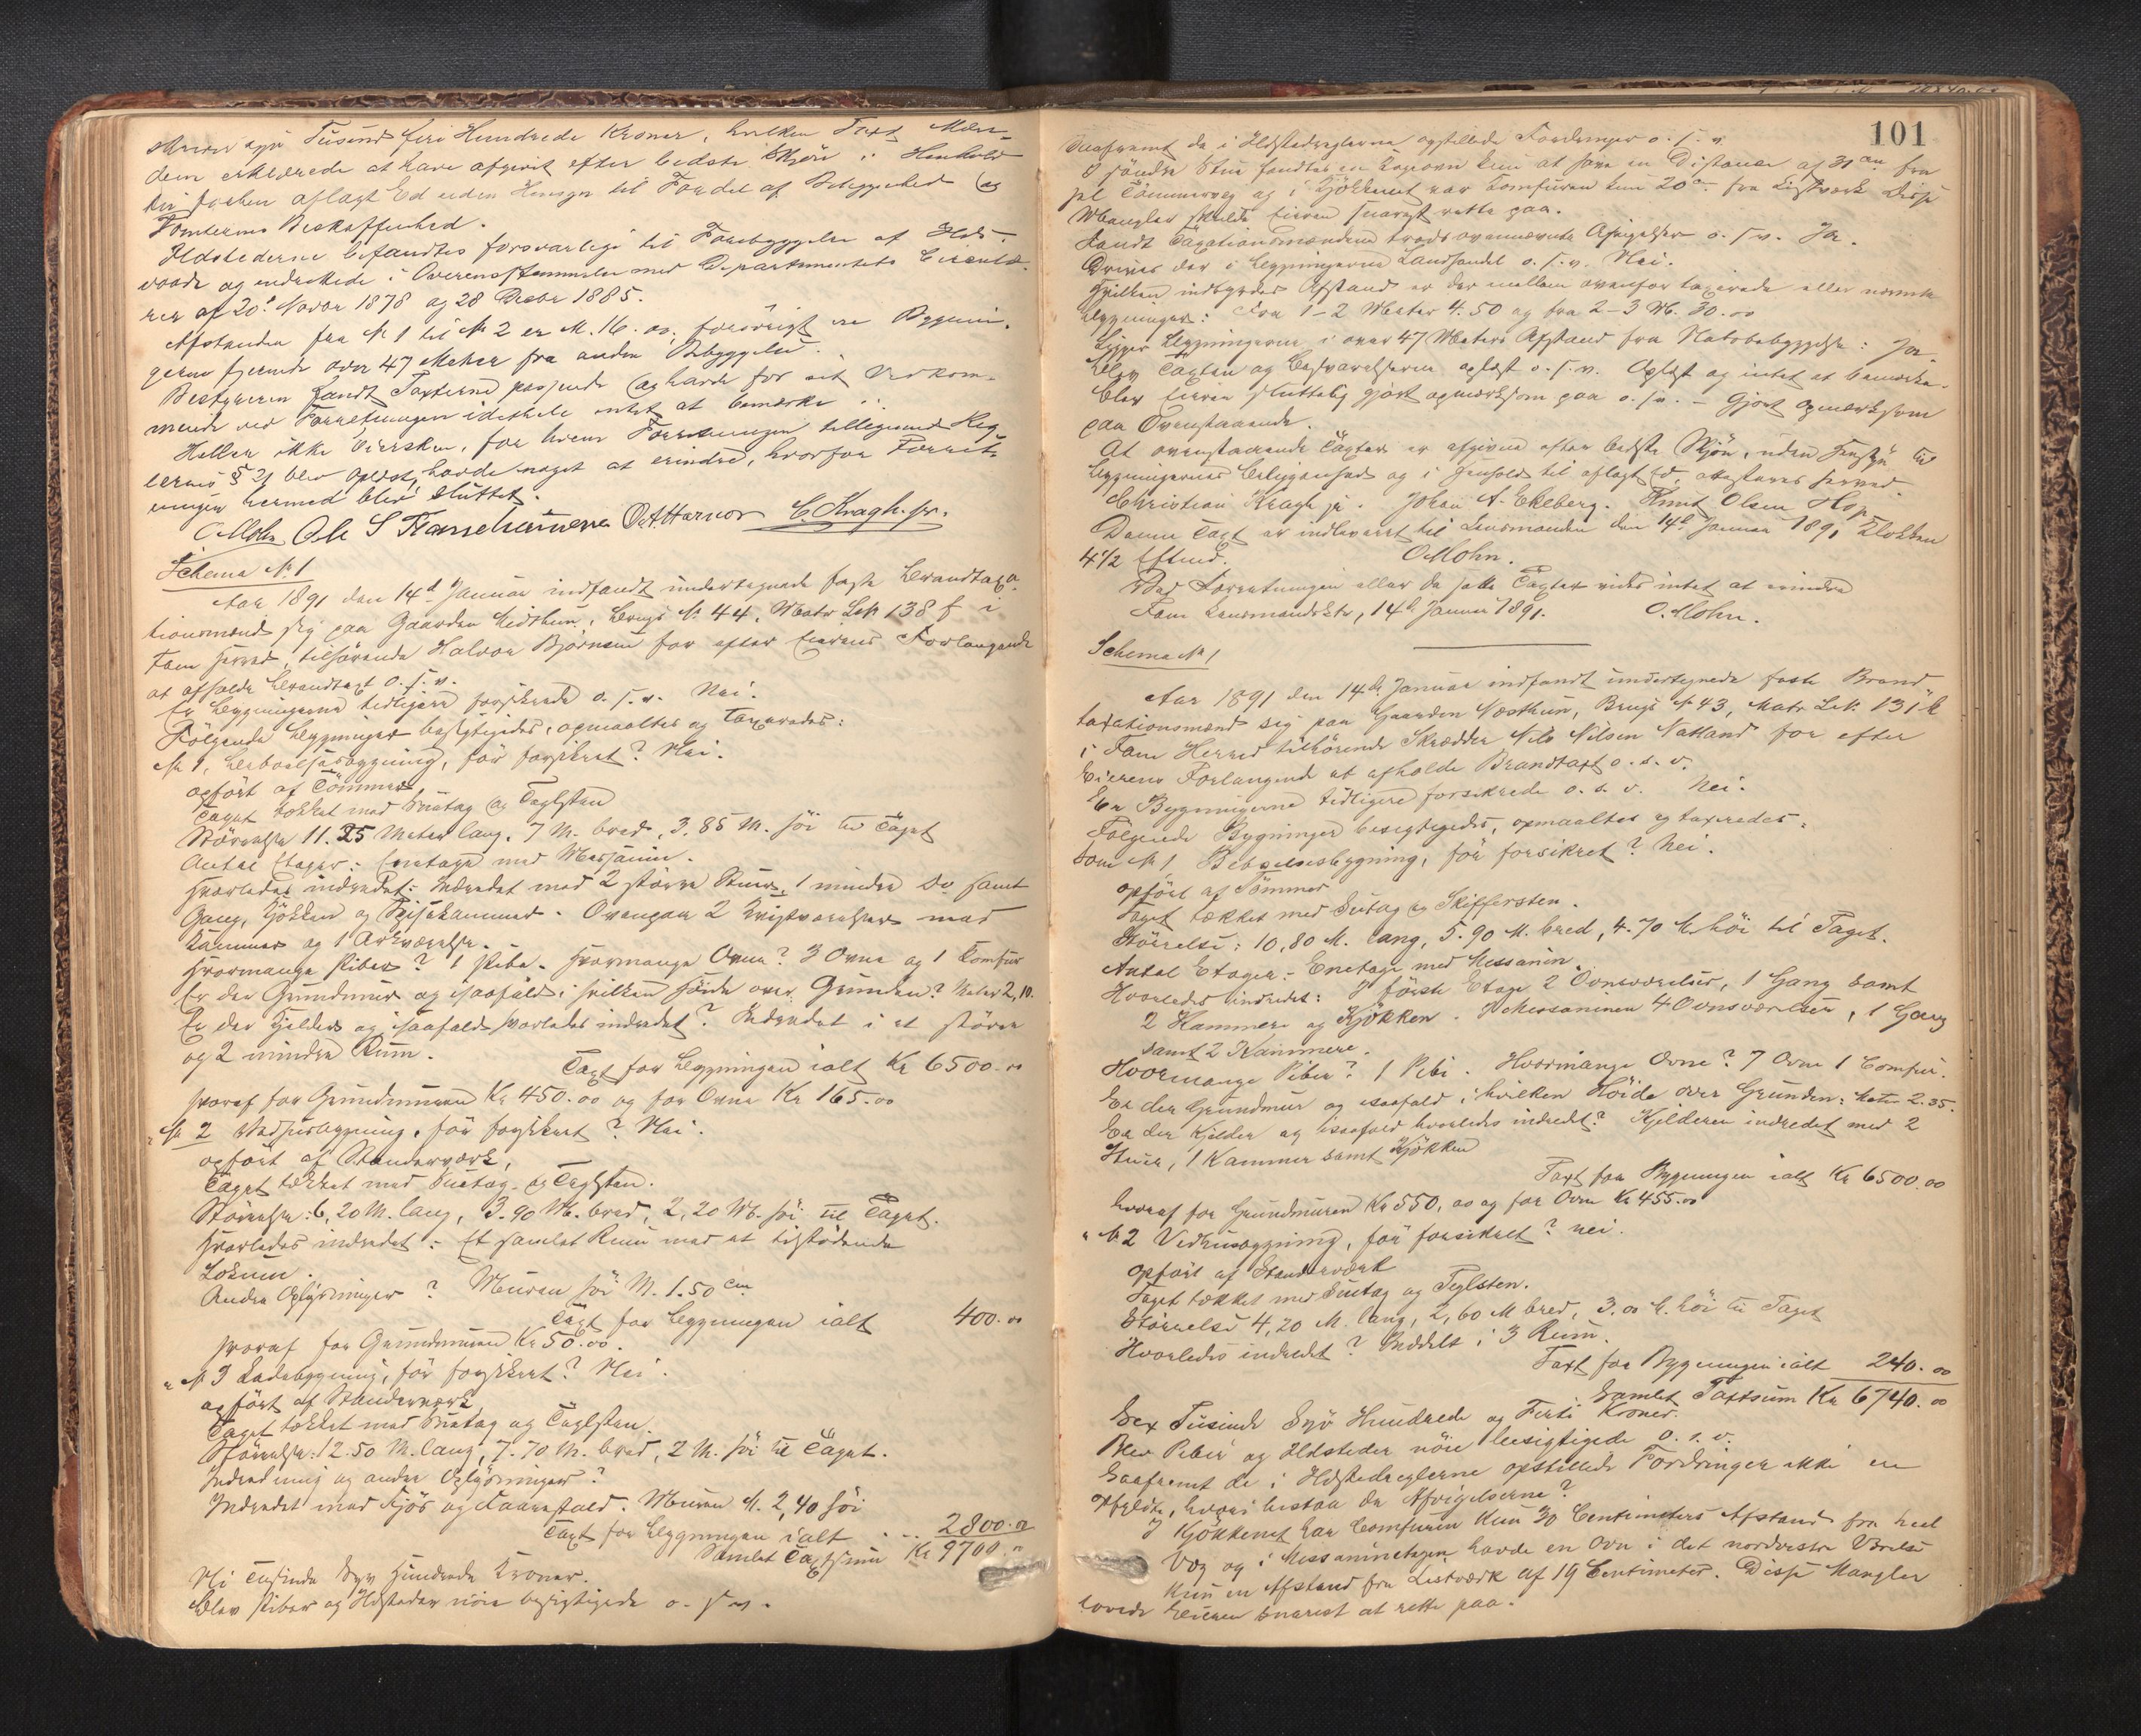 Tusind firi Hundrede Kroner, hvilken Taxt Mæn-
dene erklærede at have afgivet efter bedste Skjøn i Henhold
til forhen aflagt Ed uden Hensyn til Fordel af Beliggenhed og
Tomternes Beskaffenhed.
Ildstederne befandtes forsvarlige til Forebyggelse af Ilds-
vaade og indrettede i Overensstemmelse med Departementets Circulæ-
rer af 20de Novbr 1878 og 28 Decbr 1885.
Afstanden fra No 1 til No 2 er M. 16.00, forøvrigt ere Bygnin-
gerne fjernede over 47 Meter fra anden Bebyggelse.
Bestyreren fandt Taxterne passende og havde for sit Vedkom-
mende ved Forretningen idethele intet at bemærke.
Heller ikke Eiersken, for hvem Forretningen tilligemed Reg-
lernes § 21 blev oplæst, havde noget at erindre, hvorfor Forret-
ningen hermed blev sluttet.
O Mohn Ole S O. A. Harnor C. Kragh. jr.
Schema No 1
Aar 1891 den 14de Januar indfandt undertegnede faste Brandtaxa-
tionsmænd sig paa Gaarden Midthun, Brugs No 44, Matr Løb 138 f i
Fane Herred, tilhørende Halvor Bjørnsen for efter Eierens Forlangende
at afholde Brandtaxt o. s. v.
Er Bygningerne tidligere forsikrede o. s. v. Nei.
Følgende Bygninger besigtigedes, opmaaltes og taxeredes:
No 1, Beboelsesbygning, før forsikret? Nei.
opført af Tømmer
Taget tækket med Sutag og Teglsten
Størrelse 11.25 Meter lang, 7 M. bred, 3.85 M. høi til Taget
Antal Etager: Enetage med Messanin.
Hvorledes indredet: Indredet med 2 større Stuer, 1 mindre Do samt
Gang, Kjøkken og Spisekammer. Ovenpaa 2 Kvistværelser med
Kammer og 1 Arkværelse.
Hvormange Piber? 1 Pibe. Hvormange Ovne? 3 Ovne og 1 Comfur
Er der Grundmur og isaafald i hvilken Høide over Grunden? Meter 2,10.
Er der Kjelder og isaafald hvorledes indredet? Indredet i et større
og 2 mindre Rum.
Taxt for Bygningen ialt Kr 6500.00
hvoraf for Grundmuren Kr 450.00 og for Ovne Kr 165.00
" No 2 Vedhusbygning, før forsikret? Nei.
opført af Standerværk,
Taget tækket med Sutag og Teglsten.
Størrelse: 6,20 M. lang, 3.90 M. bred, 2,20 M. høi til Taget.
Hvorledes indredet: Et samlet Rum med et tilstødende
Lokum.
Andre Oplysninger? Muren høi M. 1.50 cm
Taxt for Bygningen ialt 400.00
hvoraf for Grundmuren Kr 50.00.
" No 3 Ladebygning, før forsikret? Nei.
opført af Standerværk,
Taget tækket med Sutag og Teglsten.
Størrelse: 12.50 M. lang, 7.70 M. bred, 2 M. høi til Taget.
Indredning og andre Oplysninger?
Indredet med Fjøs og Faarestald. Muren M. 2,40 høi
Taxt for Bygningen ialt . . . 2800.00
Samlet Taxtsum Kr 9700.00
Ni Tusinde Syv Hundrede Kroner.
Blev Piber og Ildsteder nøie besigtigede o. s. v.
101
Saafremt de i Ildstedreglerne opstillede Fordringer o. s. v.
I søndre Stue fandtes en Kogeovn kun at have en Distance af 31 cm fra
pl Tømmervæg og i Kjøkkenet var Komfuren kun 20 cm fra Listværk. Disse
Mangler skulde Eieren snarest rette paa.
Fandt Taxationsmændene trods ovennævnte Afvigelser o. s. v. Ja.
Drives der i Bygningerne Landhandel o. s. v. Nei.
Hvilken indbyrdes Afstand er der mellem ovenfor taxerede eller nævnte
Bygninger: Fra 1-2 Meter 4.50 og fra 2-3 M. 30.00
Ligger Bygningerne i over 47 Meters Afstand fra Nabobebyggelse: Ja.
Blev Taxten og Besvarelserne oplæst o. s. v. Oplæst og intet at bemærke.
Blev Eieren sluttelig gjort opmærksom paa o. s. v. - Gjort opmærksom
paa Ovenstaaende.
At ovenstaaende Taxter er afgivne efter bedste Skjøn, uden Hensyn til
Bygningernes Beliggenhed og i Henhold til aflagt Ed, attesteres herved.
Christian Kragh jr. Johan A. Ekeberg. Knut Olsen Hop
Denne Taxt er indleveret til Lensmanden den 14de Januar 1891 Klokken
4 1/2 Eftmd. O Mohn.
Ved Forretningen eller de satte Taxter vides intet at erindre
Fane Lensmandsktr, 14de Januar 1891. O. Mohn.
Schema No 1
Aar 1891 den 14de Januar indfandt undertegnede faste Brand
taxationsmænd sig paa Gaarden Næsthun, Brugs No 43, Matr Lb. 131 k
i Fane Herred tilhørende Skrædder Nils Nilsen Natland for efter
Eierens Forlangende at afholde Brandtaxt o. s. v.
Er Bygningerne tidligere forsikrede o. s. v. Nei.
Følgende Bygninger besigtigedes, opmaaltes og taxeredes:
som No 1 Beboelsesbygning, før forsikret? Nei.
opført af Tømmer
Taget tækket med Sutag og Skiffersten.
Størrelse: 10,80 M. lang, 5.90 M. bred, 4.70 M. høi til Taget.
Antal Etager: Enetage med Messanin.
Hvorledes indredet: I første Etage 2 Ovnsværelser, 1 Gang samt
2 Kammere og Kjøkken. I Messaninen 4 Ovnsværelser, 1 Gang
samt 2 Kammere.
Hvormange Piber? 1 Pibe. Hvormange Ovne? 7 Ovne 1 Comfur.
Er der Grundmur og isaafald i hvilken Høide over Grunden: Meter 2.35.
Er der Kjelder og isaafald hvorledes indredet? Kjelderen indredet med 2
Stuer, 1 Kammer samt Kjøkken
Taxt for Bygningen ialt Kr 6500.00
hvoraf for Grundmuren Kr 550,00 og for Ovne Kr 455.00
" No 2 Vedhusbygning, før forsikret? nei.
opført af Standerværk
Taget tækket med Sutag og Teglsten.
Størrelse 4,20 M. lang, 2,60 M bred, 3.00 M. høi til Taget
Hvorledes indredet? Inddelt i 3 Rum.
Taxt for Bygningen ialt 240.00
Samlet Taxtsum Kr 6740.00
Sex Tusinde Syv Hundrede og Firti Kroner.
Blev Piber og Ildsteder nøie besigtigede o. s. v.
Saafremt de i Ildstedreglerne opstillede Fordringer ikke ere
opfyldte, hvori bestaa da Afvigelserne?
I Kjøkkenet har Comfuren kun 30 Centimeters Afstand fra heel
Væg og i Messaninetagen havde en Ovn i det nordvestre Værelse
kun en Afstand fra Listværk af 19 Centimeter. Disse Mangler
lovede Eieren snarest at rette paa.